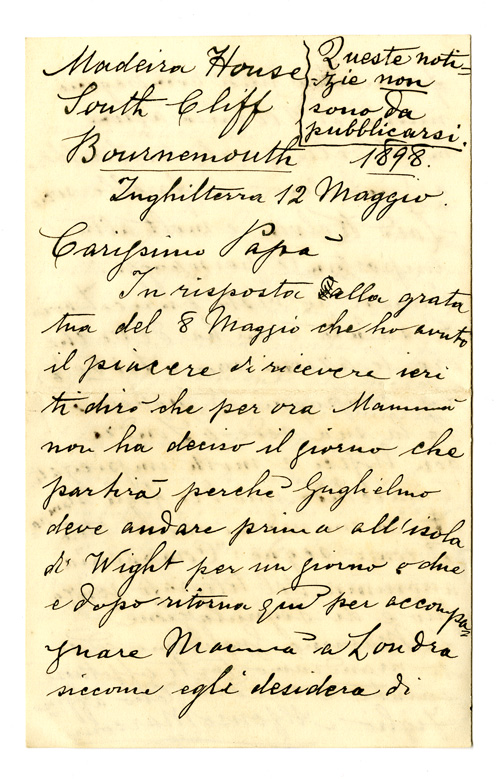 Madeira House
South Cliff
Bournemouth
Queste noti=
zie non
sono da
pubblicarsi.
1898.
Inghilterra 12 Maggio.
Carissimo Papà
In risposta alla grata
tua del 8 Maggio che ho avuto
il piacere di ricevere ieri
ti dirò che per ora Mammà
non ha deciso il giorno che
partirà perchè Guglielmo
deve andare prima all'isola
di Wight per un giorno o due
e dopo ritorna qui per accompa=
gnare Mammà a Londra
siccome egli desidera di